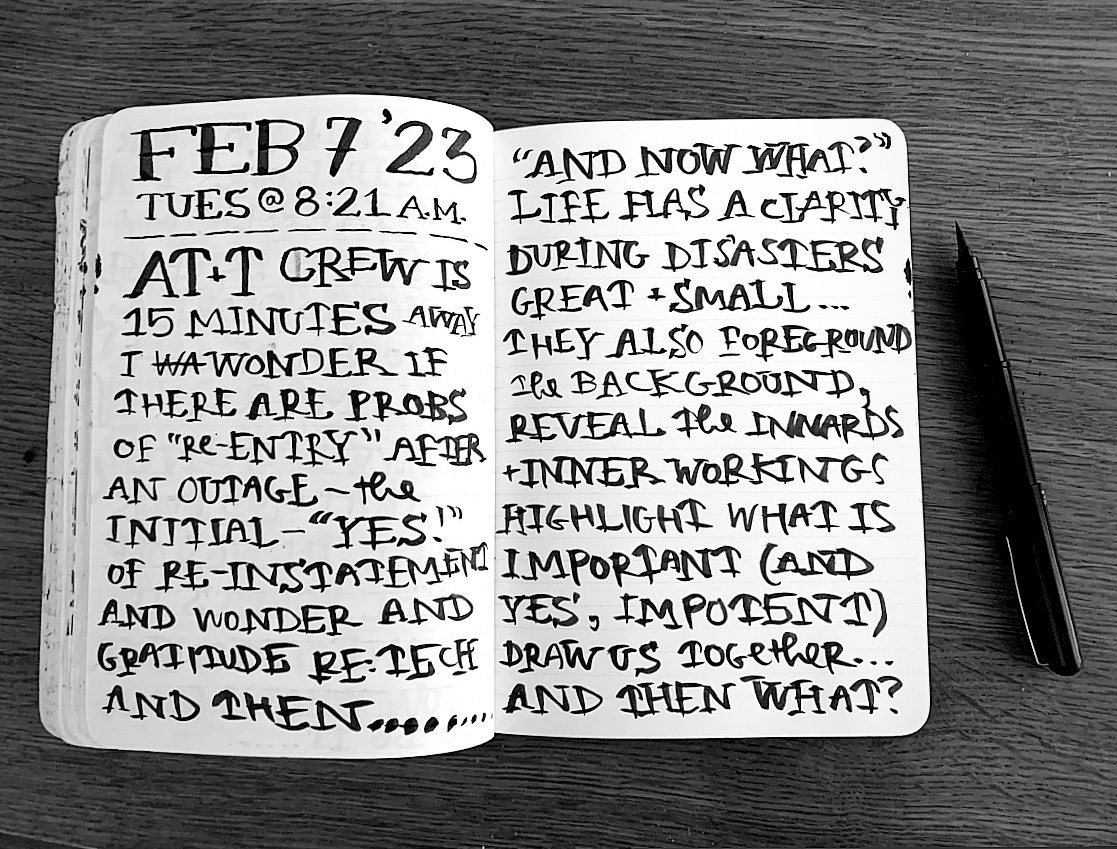 FEB 7 '23
TUES @ 8:21 A.M.
AT+T CREW IS
15 MINUTES AWAY
I WA WONDER IF
THERE ARE PROBS
OF "RE-ENTRY" AFTER
AN OUTAGE – the
INITIAL – "YES!"
OF RE-INSTATEMENT
AND WONDER AND
GRATITUDE RE: TECH
AND THEN........
"AND NOW WHAT?"
LIFE HAS A CLARITY
DURING DISASTERS
GREAT + SMALL...
THEY ALSO FOREGROUND
the BACKGROUND,
REVEAL the INNARDS
+ INNER WORKINGS
HIGHLIGHT WHAT IS
IMPORTANT (AND
YES, IMPOTENT)
DRAW US TOGETHER...
AND THEN WHAT?